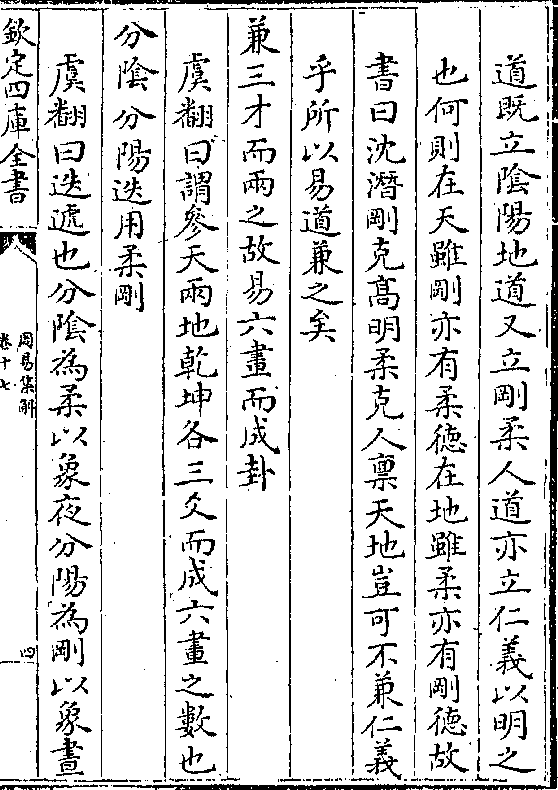 道既立陰陽地道又立剛柔人道亦立仁義以明之
也何則在天雖剛亦有柔德在地雖柔亦有剛德故
書曰沈潛剛克高明柔克人禀天地豈可不兼仁義
乎所以易道兼之矣
兼三才而兩之故易六畫而成卦
虞翻曰謂參天兩地乾坤各三爻而成六畫之數也
分陰分陽迭用柔剛
虞翻曰迭遞也分陰為柔以象夜分陽為剛以象晝
欽定四庫全書
周易集解
卷十七
四